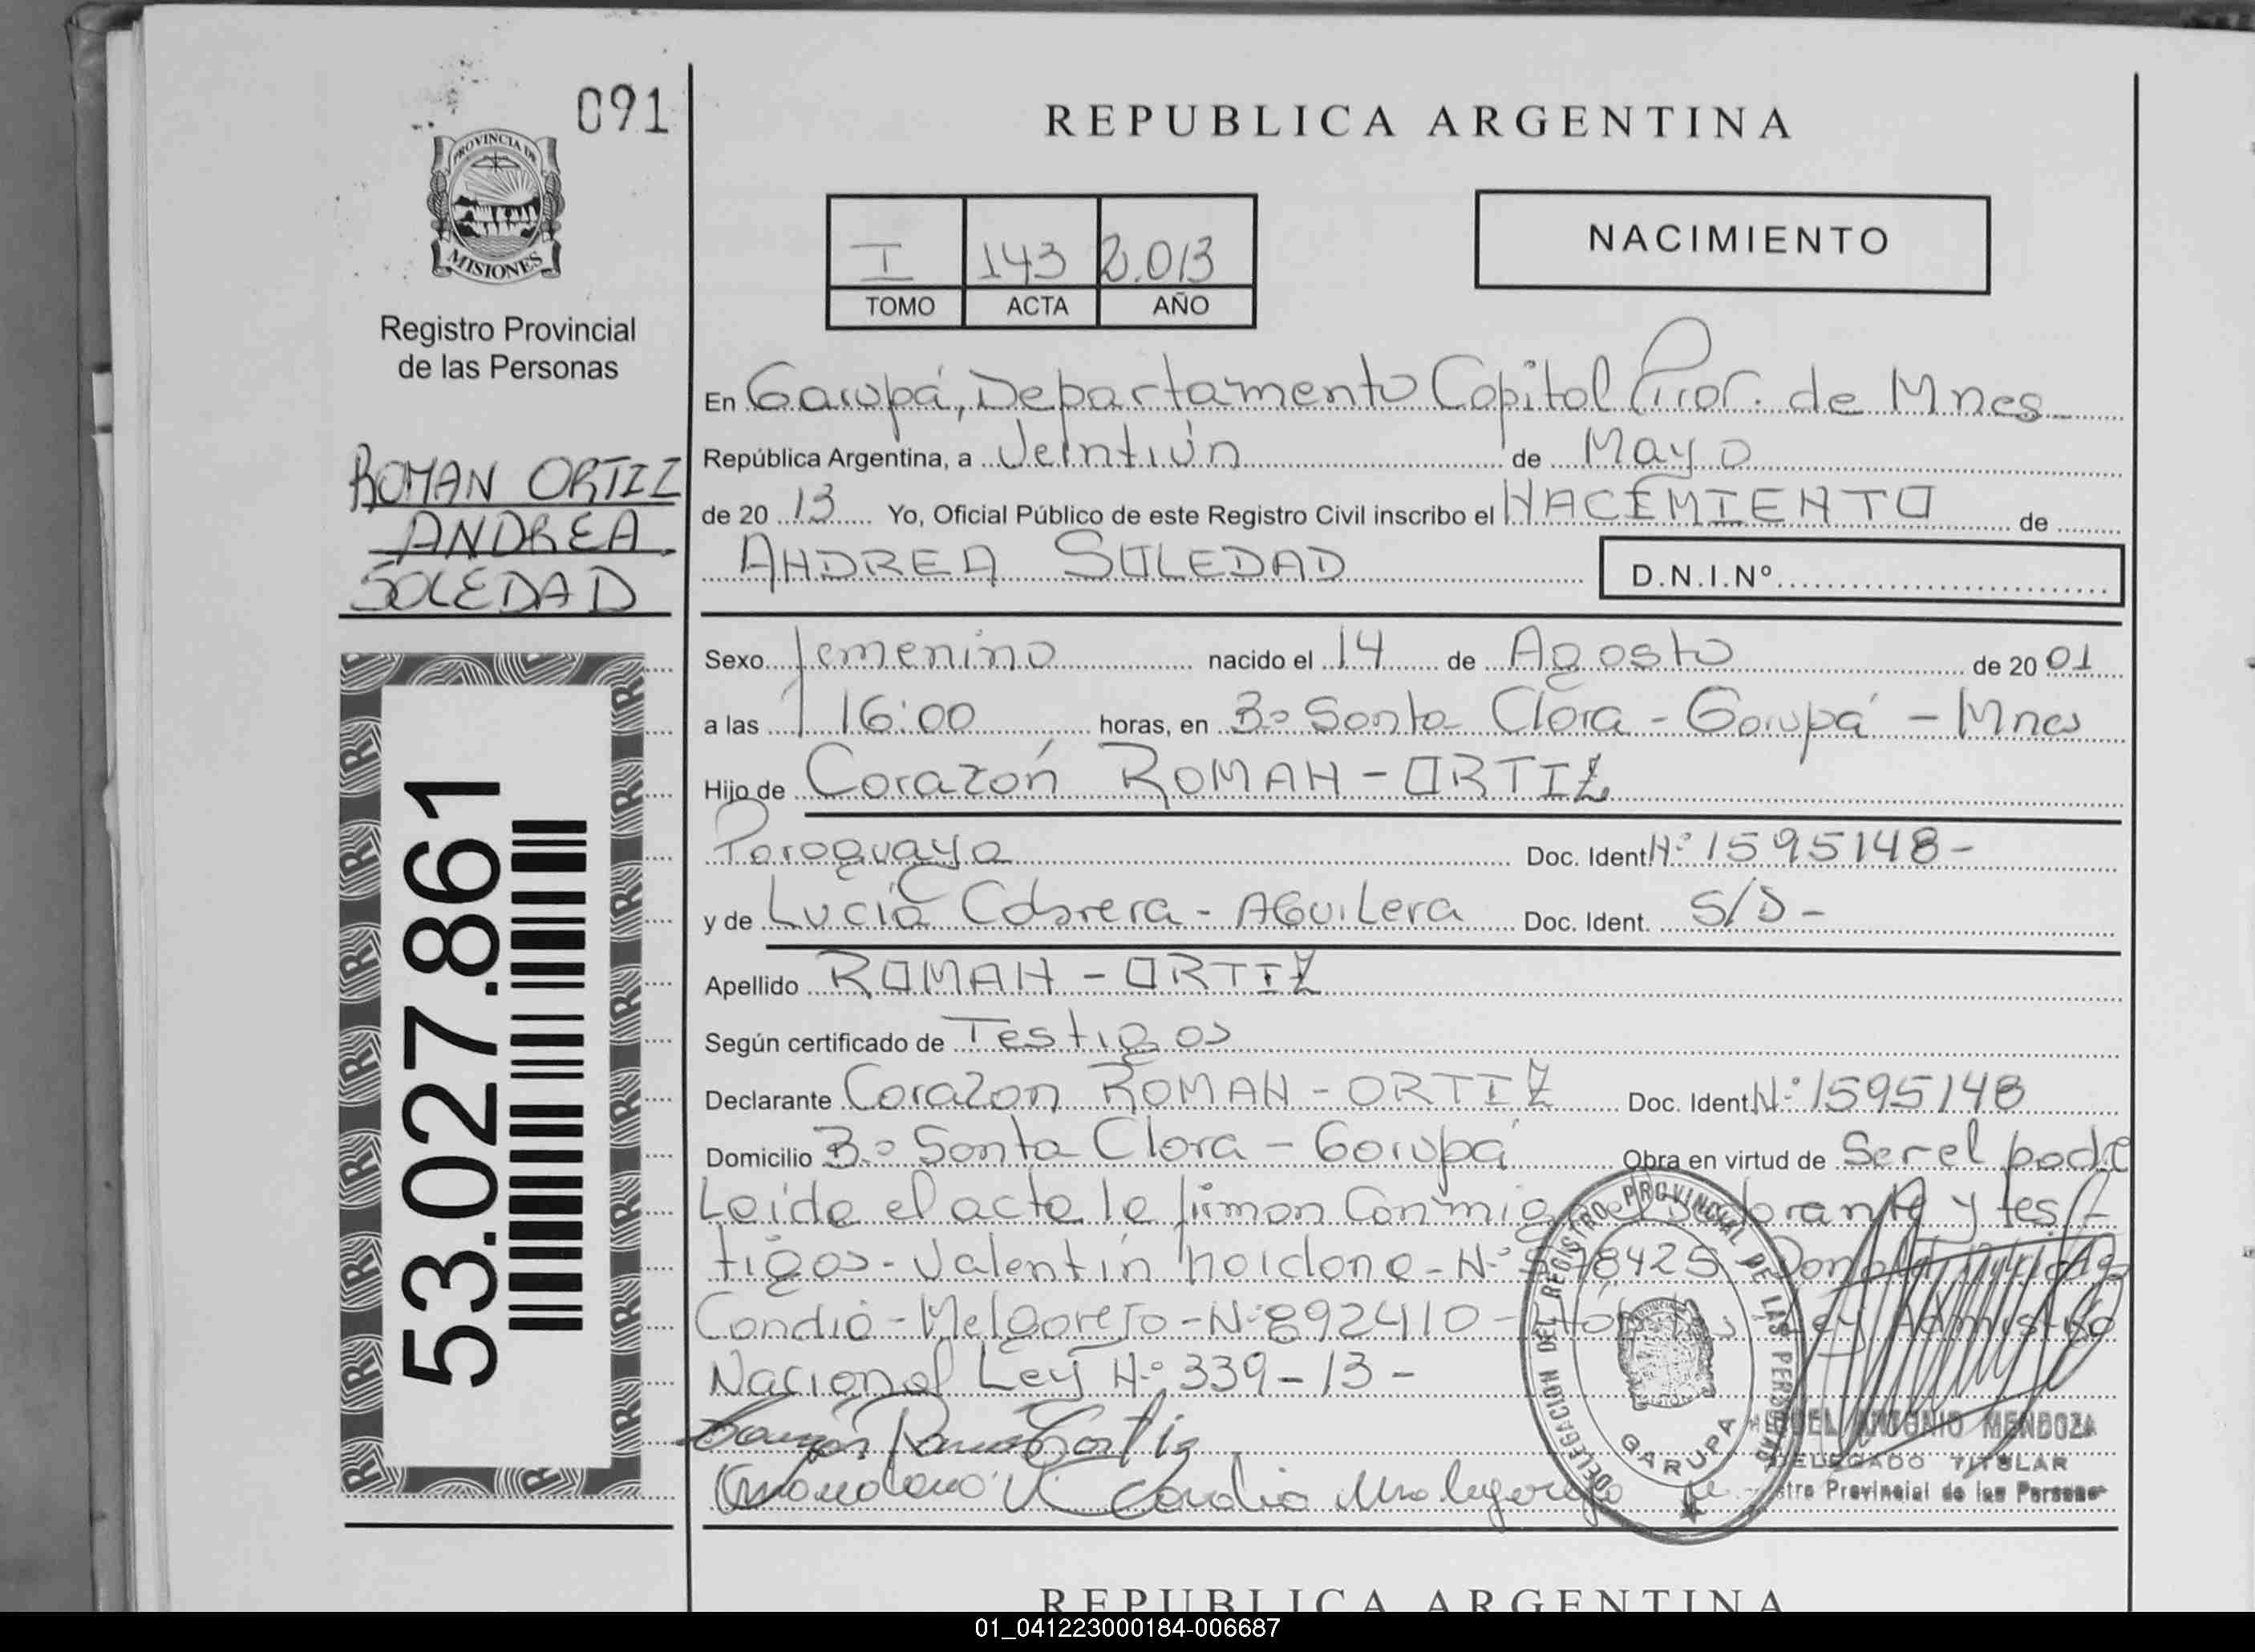 091
PROVINCIA DE
MISIONES
Registro Provincial
de las Personas
ROMAN ORTIZ
ANDREA
SOLEDAD
53.027.861
REPUBLICA ARGENTINA
I 143 2.013
TOMO ACTA AÑO
NACIMIENTO
En Garupá, Departamento Capital Prov. de Mnes
República Argentina, a Veintiún de Mayo
de 20 13 Yo, Oficial Público de este Registro Civil inscribo el NACEMIENTO de
ANDREA SOLEDAD D.N.I.Nº
Sexo femenino nacido el 14 de Agosto de 20 01
a las 16:00 horas, en Bº Santa Clara - Garupá - Mnes
Hijo de Corazón ROMAN - ORTIZ
Paraguaya Doc. Ident. Nº 1595148-
y de Lucia Cabrera - AGuiLera Doc. Ident. S/D-
Apellido ROMAN - ORTIZ
Según certificado de Testigos
Declarante Corazon ROMAN - ORTIZ Doc. Ident. Nº 1595148
Domicilio Bº Santa Clara - Garupá Obra en virtud de Ser el padre
Leida el acta la firman Conmigo el y tes
tigos - Valentín Nº
Candia - Melgarejo - Nº 892410 - Ley
Nacional Ley Nº 339-13-
Candia
DELEGACION DEL REGISTRO PROVINCIAL DE LAS PERSONAS
GARUPA
MIGUEL ANTONIO MENDOZA
DELEGADO TITULAR
Provincial de las Personas
REPUBLICA ARGENTINA
01_041223000184-006687